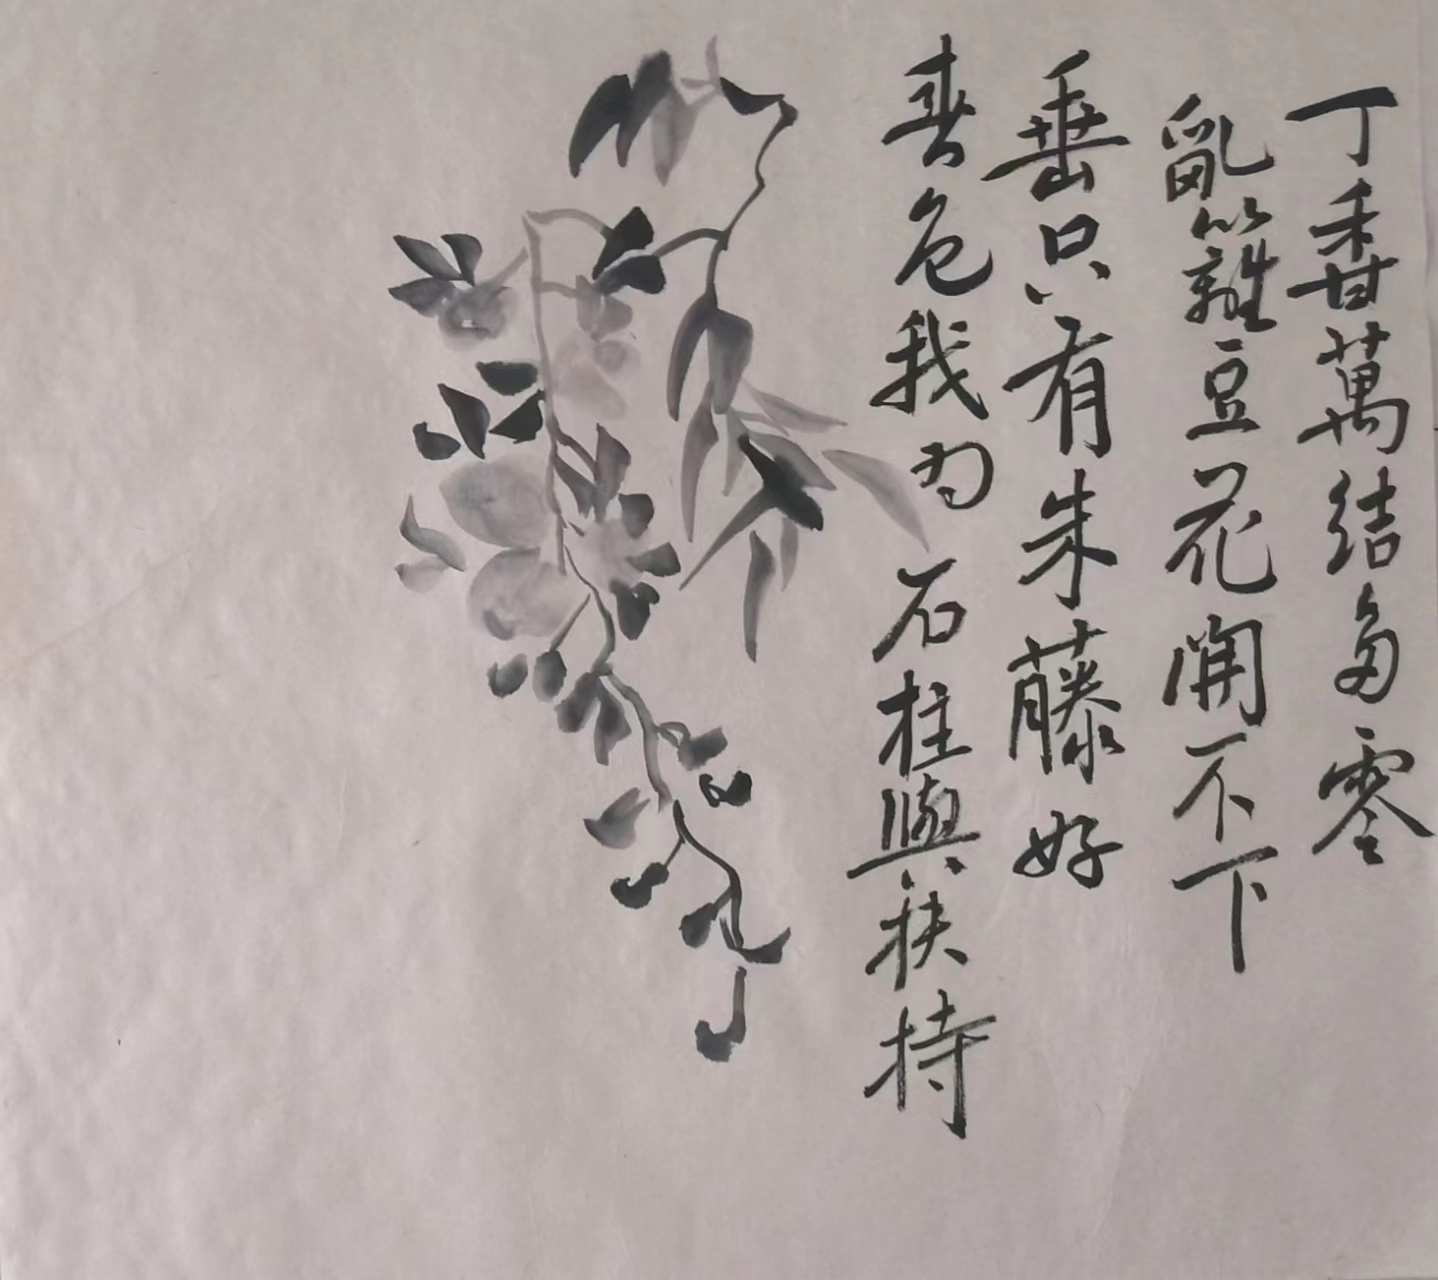 丁香萬結多零
亂籬豆花開不下
垂只有朱藤好
春色我为石柱與扶持